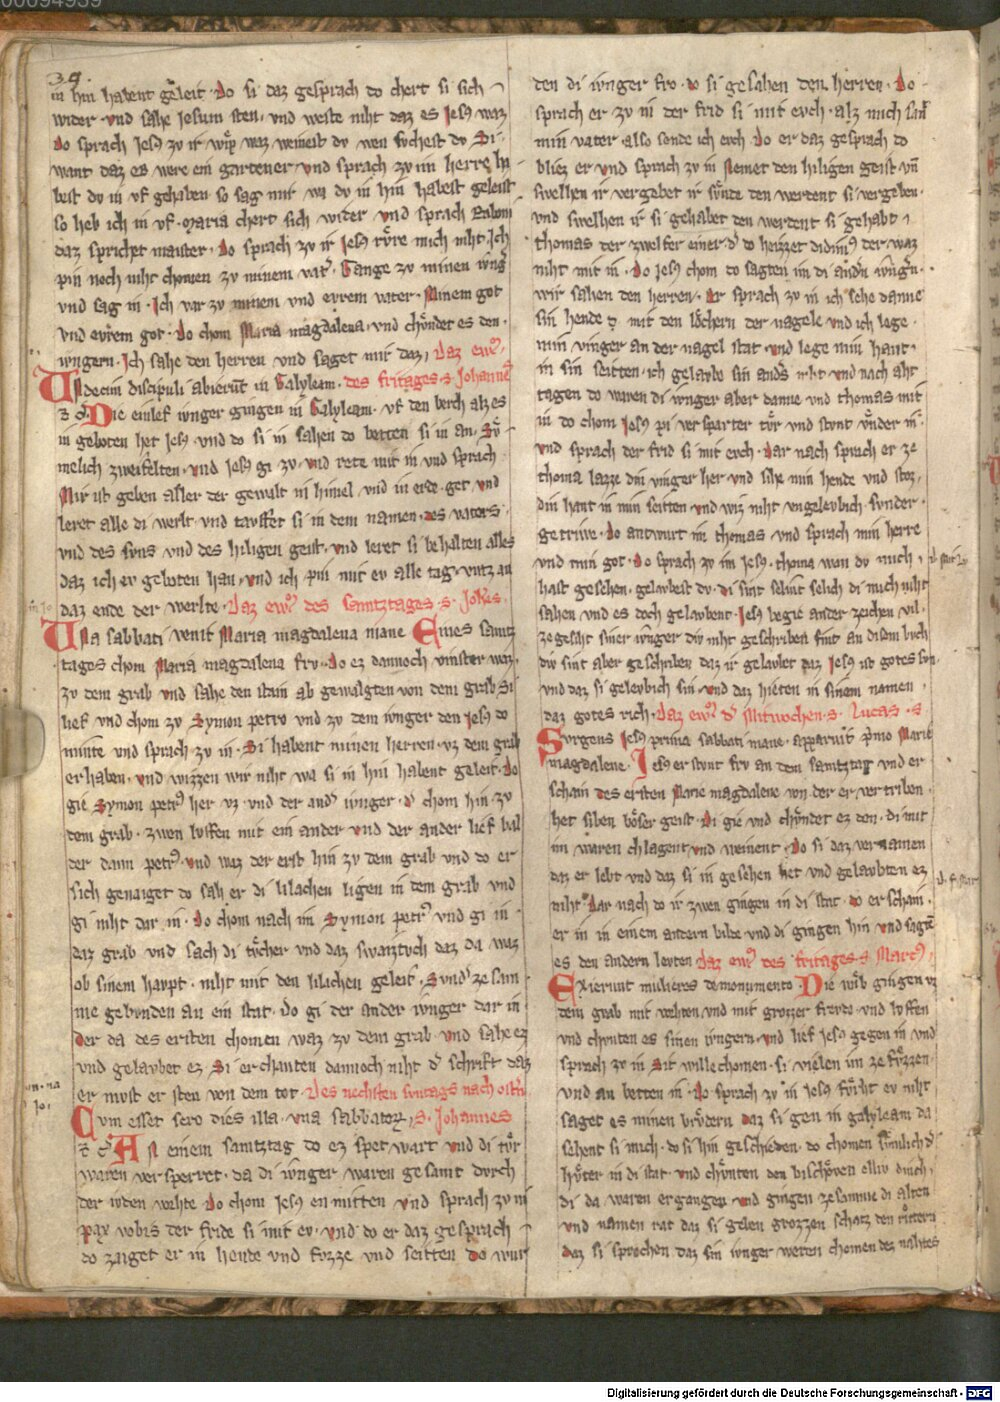 00094939
34.
in hin habent geleit · Do si daz gesprach do chert si sich
wider · vnd sahe Jesum sten · vnd weste niht daz es Jesus waz
do sprach Jesus zv ir wip waz weinest dv wen svchest dv Si
want daz es were ein gartener · vnd sprach zv im herre ha
best dv in vf gehaben so sag mir wa dv in hin habest geleist
so heb ich in vf · Maria chert sich wider vnd sprach Raboni
daz sprichet maister · Do sprach zv ir Jesus rvre mich niht Ich
pin noch niht chomen zv minem vater · Gange zv minen ivnger
vnd sag in · Ich var zv minem vnd evrem vater · Minem got
vnd evrem got · Do chom Maria magdalena · vnd chvndet es den
ivngern · Ich sahe den herren vnd saget mir daz, Daz ewa
Vndecim discipuli abierunt in Galyleam · des fritages · s · Johannes
Die einlef ivnger gingen in Galyleam · vf den berch alz es
in geboten het Jesus vnd do si in sahen do betten si in an · Sv
melich zweifelten · vnd Jesus gi zv · vnd rete mit in vnd sprach
Mir ist geben aller der gewalt in himel vnd in erde · get vnd
leret alle di werlt · vnd tavffet si in dem namen · des vaters
vnd des svns vnd des hiligen geist · vnd leret si behalten alles
daz ich ev geboten han · vnd ich pin mit ev alle tag · vntz an
daz ende der werlte · Daz ewo des samtztages · s · Johes
Vna sabbati venit Maria magdalena mane Eines samtz
tages chom Maria magdalena frv · do ez dannoch vinster waz
zv dem grab vnd sahe den stain ab gewalgten von dem grab Si
lief vnd chom zv Symon petro vnd zv dem ivnger den Jesus do
minte vnd sprach zv in · Si habent minen herren vz dem grab
erhaben · vnd wizzen wir niht wa si in hin habent geleit · Do
gie Symon petrus her vz · vnd der ander ivnger · der chom hin zv
dem grab · zwen lvffen mit ein ander vnd der ander lief bal
der dann petrus · vnd waz der erst hin zv dem grab vnd do er
sich genaiget do sah er di lilachen ligen in dem grab vnd
gi niht dar in · Do chom nach im Symon petrus vnd gi in
daz grab vnd sach di tvcher vnd daz swaiztvch daz da waz
ob sinem havpt · niht mit den lilachen geleit · Sunder ze sam
ne gebvnden an ein stat · Do gi der ander ivnger dar in
der da des ersten chomen waz zv dem grab · vnd sahe ez
vnd gelavbet ez Si erchanten dannoch niht der schrift daz
er mvst er sten von dem tot · Des nechsten svntags nach ostern
Cvm esset sero dies illa · vna sabbatorum · s · Johannes
An einem samtztag do ez spet wart vnd di tvr
waren versperret · da di ivnger waren gesamt dvrch
der ivden vorhte Do chom Jesus en mitten vnd sprach zv in
pax vobis der fride si mit ev · vnd do er daz gesprach
do zaiget er in hende vnd fvzze vnd seitten do wur
den di ivnger fro · do si gesahen den herren · Do
sprach er zv in der frid si mit evch · alz mich sant
min vater · also sende ich evch Do er daz gesprach do
bliez er vnd sprach zv in Nemet den hiligen geist vnd
swelhen ir vergebet ir svnde den werdent si vergeben
vnd swelhen ir si gehabet den werdent si gehabt
thomas der zwelfer einer der do heizzet didimus der waz
niht mit in · Do Jesus chom do sagten im di andern ivngern
wir sahen den herren · Er sprach zv in ich sehe danne
sin hende mit den lochern der nagele vnd ich lege
min vinger an der nagel stat vnd lege min hant
in sin seitten · ich gelavbe sin anders niht vnd nach aht
tagen do waren di ivnger aber danne vnd thomas mit
in do chom Jesus pi versparter tvr vnd stvnt vnder in
vnd sprach der frid si mit evch · dar nach sprach er ze
thoma lazze din vinger her vnd sihe min hende vnd stoz
din hant in min seitten vnd wiz niht vngelevbich svnder
getriwe · do antwurt im thomas vnd sprach min herre
vnd min got · Do sprach zv im Jesus · thoma won dv mich
hast gesehen · gelavbest dv · di sint selich di mich niht
sahen vnd es doch gelavbent Jesus begie ander zeichen vil
ze gesiht siner ivnger div niht geschriben sint an disem bvch
div sint aber geschriben daz ir gelavbet daz Jesus ist gotes svn
vnd daz si gelevbich sin vnd daz hieten in sinem namen
daz gotes rich · Daz ewo der Mitwochen · s · Lucas · s
Svrgens Jesus prima sabbati mane · apparuit primo Marie
magdalene · Jesus erstvnt frv an dem samtztag vnd er
schain des ersten Marie magdalene von der er vertriben
het siben boser geist · Di gie vnd chvndet ez den · di mit
im waren chlagent vnd weinent Do si daz vernamen
daz er lebt vnd daz si in gesehen het vnd gelavbten ez
niht Dar nach do ir zwen gingen in di stat · do erschain
er in in einem andern bilde vnd di gingen hin vnd sagten
es den andern levten Daz ewo des fritages s Marcus
Exierunt mulieres de monumento · Die wib gingen vz
dem grab mit vorhten vnd mit grozzer frevde vnd lvffen
vnd chvnten es sinen ivngern · vnd lief Jesus gegen in vnd
sprach zv in Sit willechomen · si vielen im ze fvzzen
vnd an betten in Do sprach zv in Jesus fvrht ev niht
saget es minen brvdern daz si gen in galyleam da
sehent si mich · do si hin geschieden · do chomen svmlich der
hvter in di stat vnd chvnten den bischoven elliv dinch
di da waren ergangen vnd gingen zesamne di alten
vnd namen rat daz si geben grozzen schatz den rittern
daz si sprechen daz sin ivnger weren chomen dez nahtes
Digitalisierung gefördert durch die Deutsche Forschungsgemeinschaft · DFG